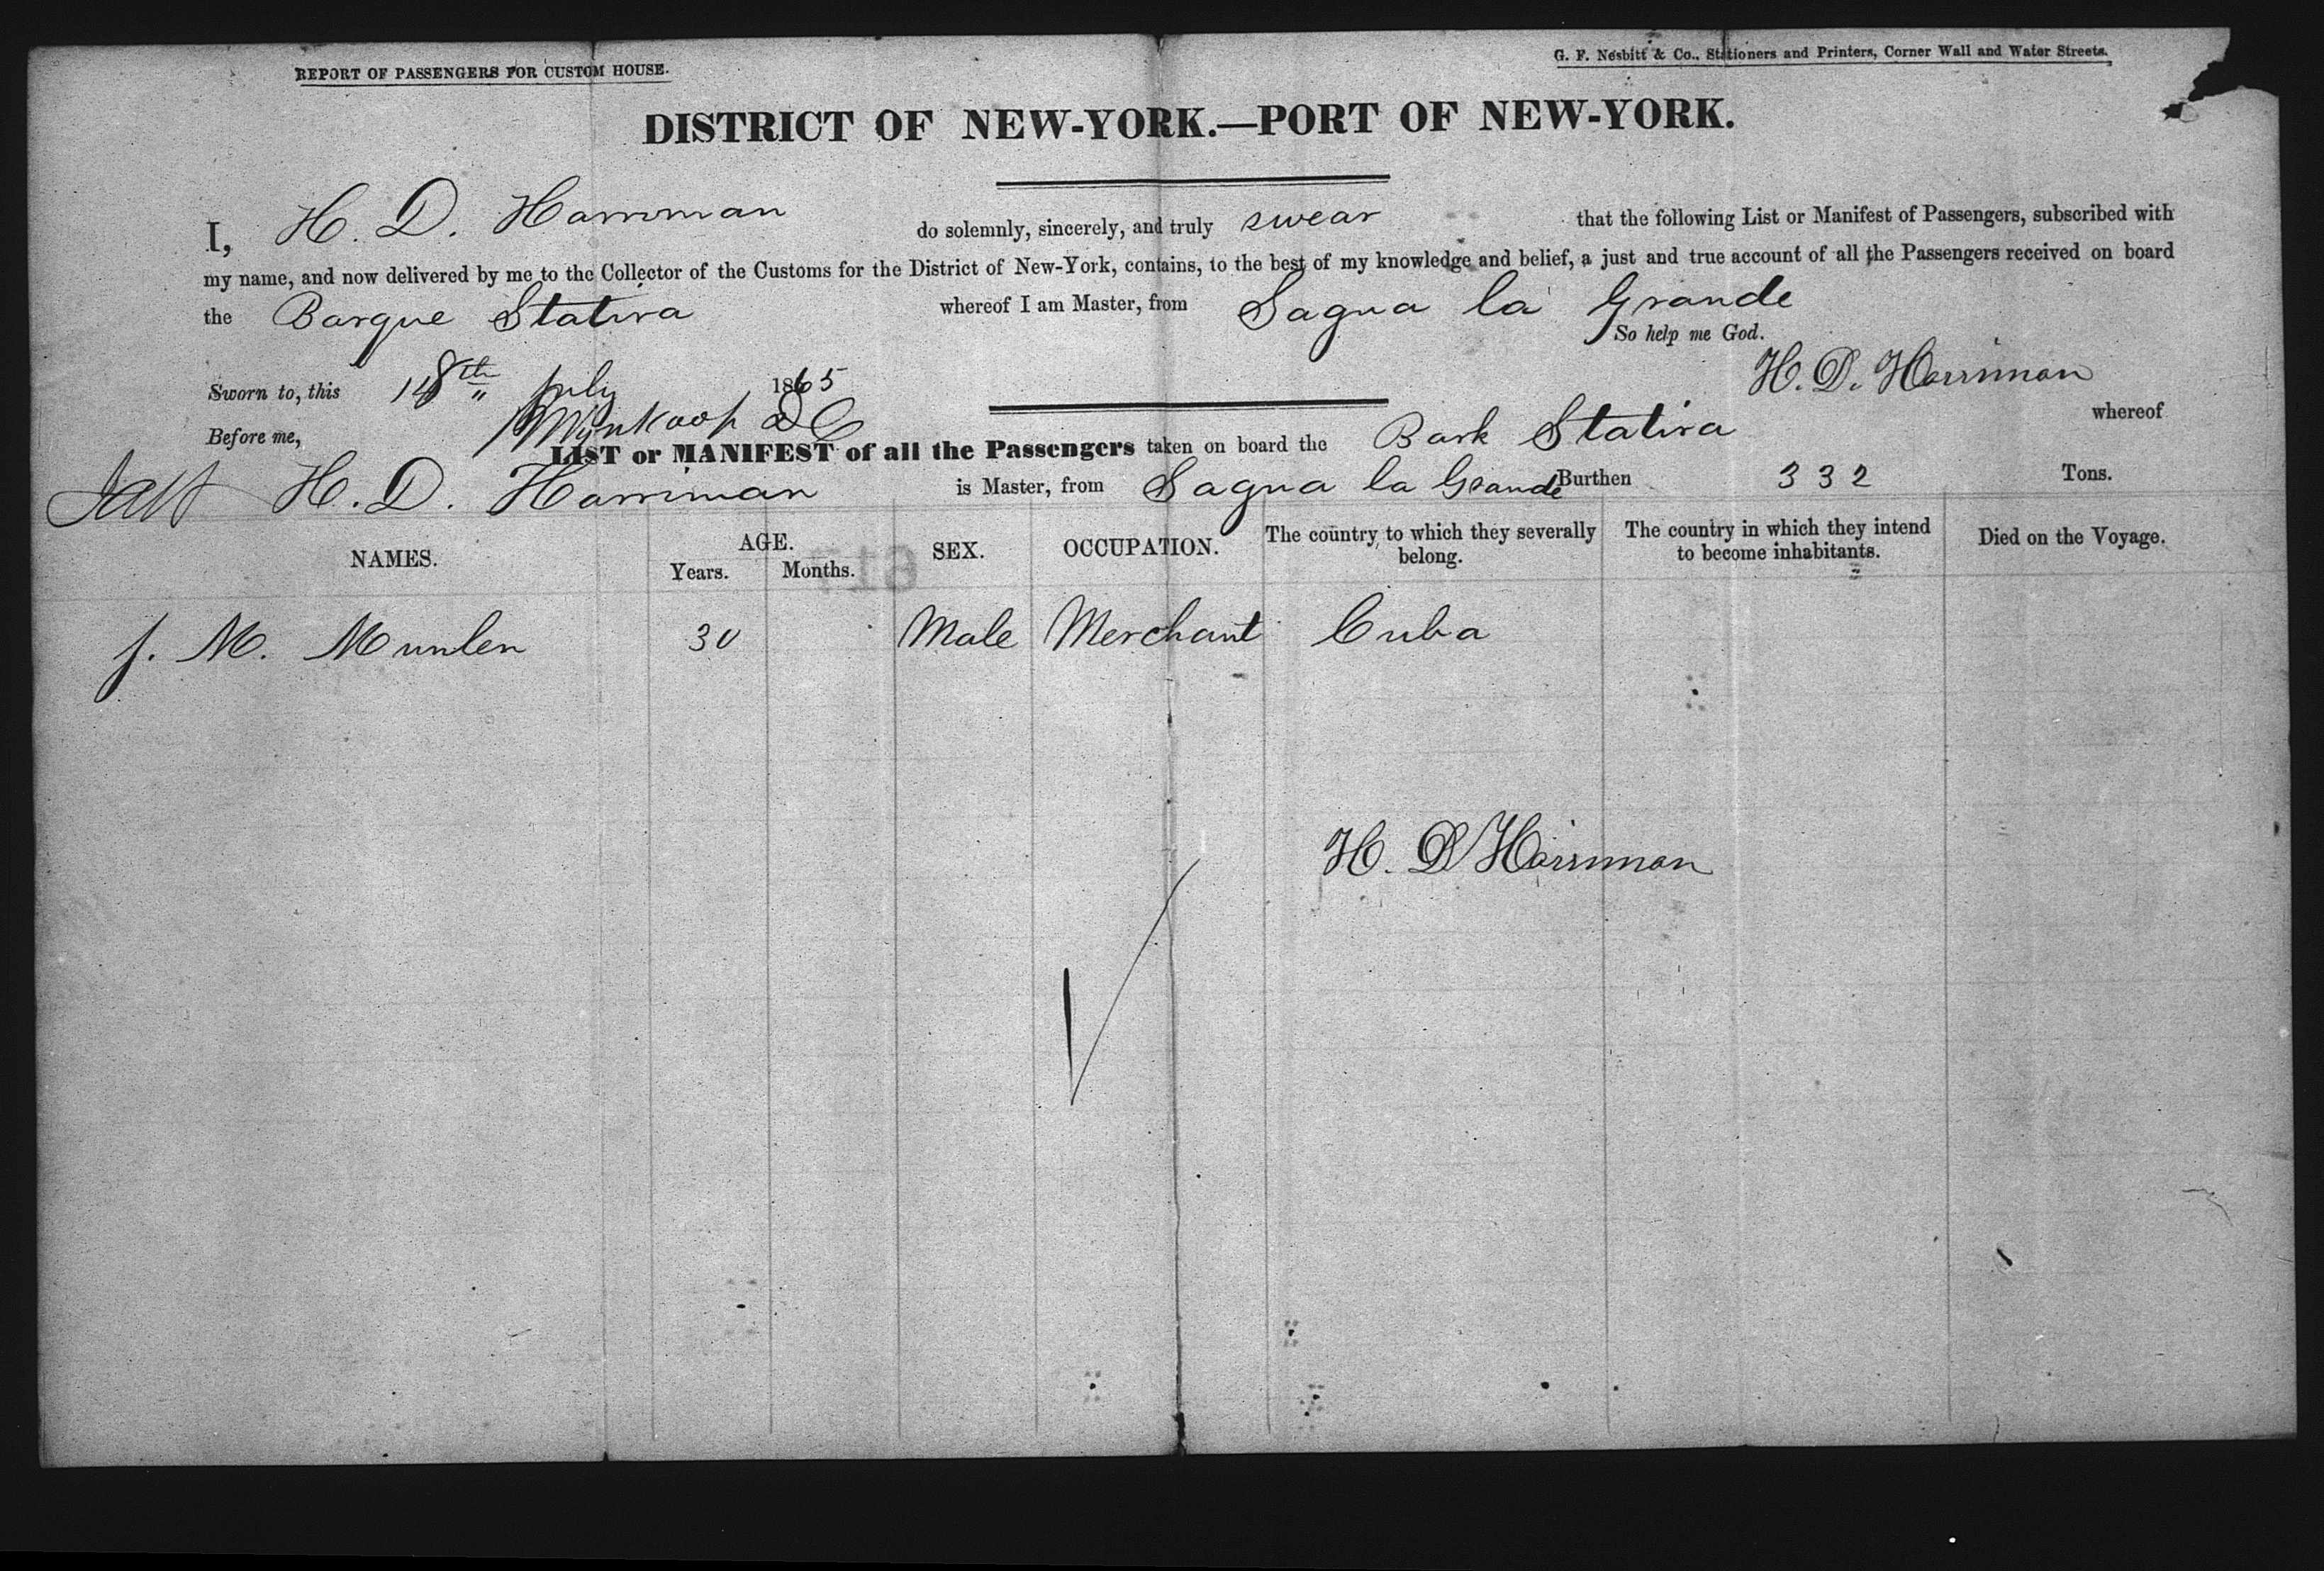 REPORT OF PASSENGERS FOR CUSTOM HOUSE.
G. F. Nesbitt & Co., Stationers and Printers, Corner Wall and Water Streets.
DISTRICT OF NEW-YORK.—PORT OF NEW-YORK.
I, H. D. Harriman do solemnly, sincerely, and truly swear that the following List or Manifest of Passengers, subscribed with
my name, and now delivered by me to the Collector of the Customs for the District of New-York, contains, to the best of my knowledge and belief, a just and true account of all the Passengers received on board
the Barque Statira whereof I am Master, from Sagua la Grande
So help me God.
Sworn to, this 18th July 1865 H. D. Harriman
Before me, Wynkoop DC
LIST or MANIFEST of all the Passengers taken on board the Bark Statira whereof
H. D. Harriman is Master, from Sagua la Grande Burthen 332 Tons.
NAMES. AGE. Years. Months. SEX. OCCUPATION. The country to which they severally belong. The country in which they intend to become inhabitants. Died on the Voyage.
J. M. Munlen 30 Male Merchant Cuba
H. D Harriman